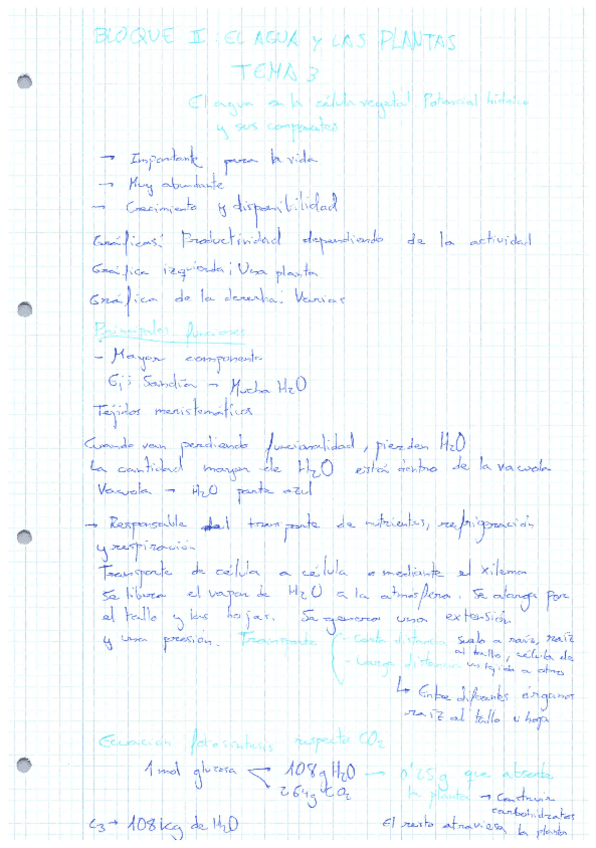 BLOQUE II: EL AGUA Y LAS PLANTAS
TEMA 3
El agua en la célula vegetal. Potencial hídrico
y sus componentes
→ Importante para la vida
→ Muy abundante
→ Crecimiento y disponibilidad
Gráficas: Productividad dependiendo de la actividad
Gráfica izquierda: Una planta
Gráfica de la derecha: Varias
Principales funciones
- Mayor componente
Ej: Sandía → Mucha H2O
Tejidos meristemáticos
Cuando van perdiendo funcionalidad, pierden H2O
La cantidad mayor de H2O está dentro de la vacuola
Vacuola → H2O parte azul
→ Responsable del transporte de nutrientes, refrigeración
y respiración
Transporte de célula a célula o mediante el xilema
Se libera el vapor de H2O a la atmósfera. Se alarga por
el tallo y las hojas. Se genera una extensión
y una presión. Transporte
- corta distancia suelo a raíz, raíz
al tallo, célula de
un tejido a otro
- larga distancia
↳ Entre diferentes órganos
raíz al tallo u hoja
Ecuación fotosíntesis respecto CO2
1 mol glucosa
108g H2O → 0'25g que absorbe
la planta → Construir
carbohidratos
264g CO2
C3 → 108 kg de H2O
El resto atraviesa la planta